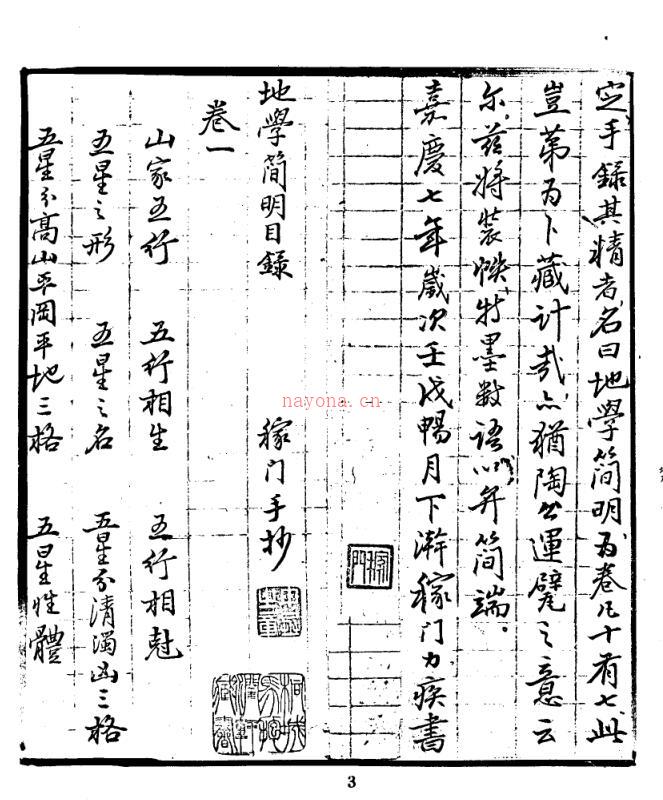 定手錄其精者名曰地學簡明為卷凡十有七此
豈第為卜藏計哉亦猶陶公運甓之意云
尔茲將裝帙特墨数语以弁简端。
嘉慶七年歲次壬戌暢月下澣稼门力疾書
稼門
地學简明目錄 稼门手抄
卷一
山家五行 五行相生 五行相尅
五星之形 五星之名 五星分清濁凶三格
五星分高山平岡平地三格 五星性體
nayona.cn
3